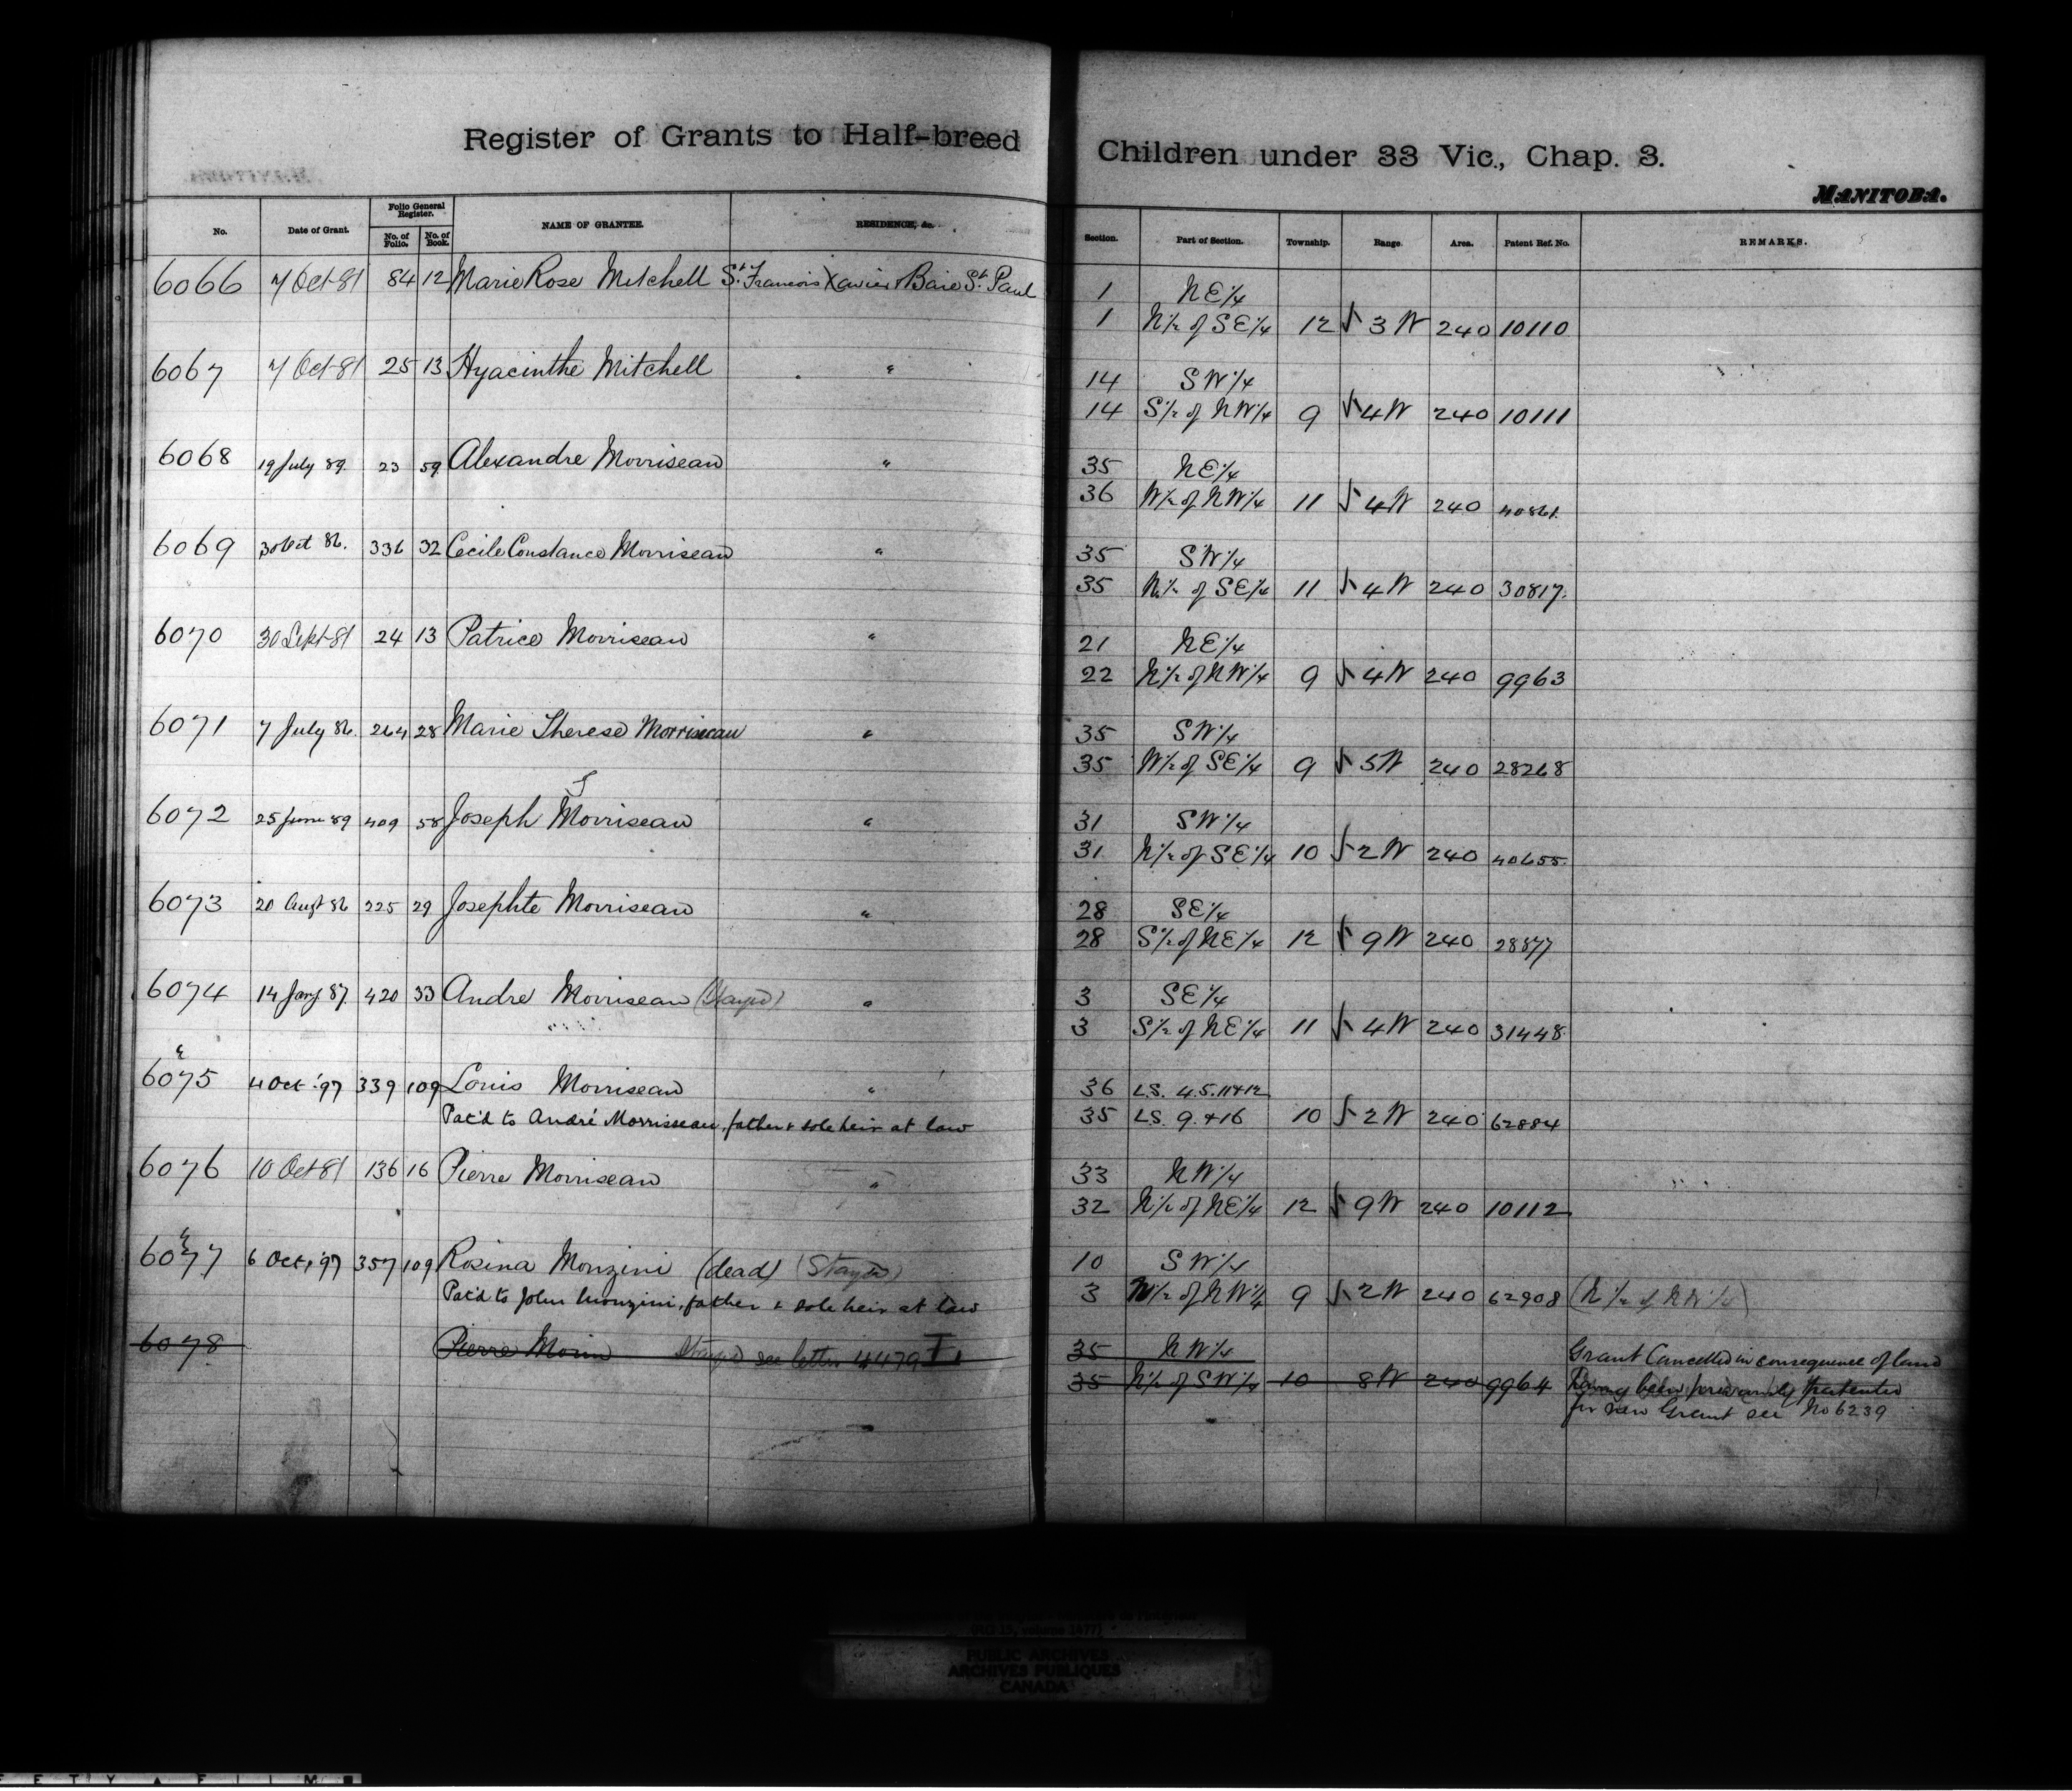 Register of Grants to Half-breed Children under 33 Vic., Chap. 3.
MANITOBA.
No. Date of Grant. Folio General Register. No. of Folio. No. of Book. NAME OF GRANTEE. RESIDENCE, &c. Section. Part of Section. Township. Range Area. Patent Ref. No. REMARKS.
6066 7 Oct 81 84 12 Marie Rose Mitchell St. Francois Xavier & Baie St. Paul 1 NE 1/4
1 N 1/2 of SE 1/4 12 3 W 240 10110
6067 7 Oct 81 25 13 Hyacinthe Mitchell " 14 SW 1/4
14 S 1/2 of NW 1/4 9 4W 240 10111
6068 19 July 89 23 59 Alexandre Morriseau " 35 NE 1/4
36 W 1/2 of NW 1/4 11 4W 240 40861
6069 30 Oct 86. 336 32 Cecile Constance Morriseau " 35 SW 1/4
35 N 1/2 of SE 1/4 11 4W 240 30817.
6070 30 Sept 81 24 13 Patrice Morriseau " 21 NE 1/4
22 N 1/2 of NW 1/4 9 4W 240 9963
6071 7 July 86. 264 28 Marie Therese Morriseau " 35 SW 1/4
35 W 1/2 of SE 1/4 9 5W 240 28268
6072 25 June 89 409 58 Joseph Morriseau " 31 SW 1/4
31 N 1/2 of SE 1/4 10 2W 240 40655
6073 20 Augt 86 225 29 Josephte Morriseau " 28 SE 1/4
28 S 1/2 of NE 1/4 12 9W 240 28877
6074 14 Jany 87. 420 33 Andre Morriseau (Stayed) " 3 SE 1/4
3 S 1/2 of NE 1/4 11 4W 240 31448
6075 4 Oct '97 339 109 Louis Morriseau " 36 L.S. 4.5.11+12
Pat'd to André Morrisseau, father & sole heir at law 35 L.S. 9.+16 10 2W 240 62884
6076 10 Oct 81 136 16 Pierre Morriseau " 33 NW 1/4
32 N 1/2 of NE 1/4 12 9W 240 10112
6077 6 Oct, '97 357 109 Rosina Monzini (dead) (Stayed) 10 SW 1/4
Pat'd to John Monzini, father & sole heir at law 3 N 1/2 of NW 1/4 9 2W 240 62908 (N 1/2 of NW 1/4)
6078 Pierre Morin Stayed see letter 4479 35 NW 1/4 Grant Cancelled in consequence of land
35 N 1/2 of SW 1/4 10 8W 240 9964 having been previously patented
for new Grant see No 6239
PUBLIC ARCHIVES
ARCHIVES PUBLIQUES
CANADA